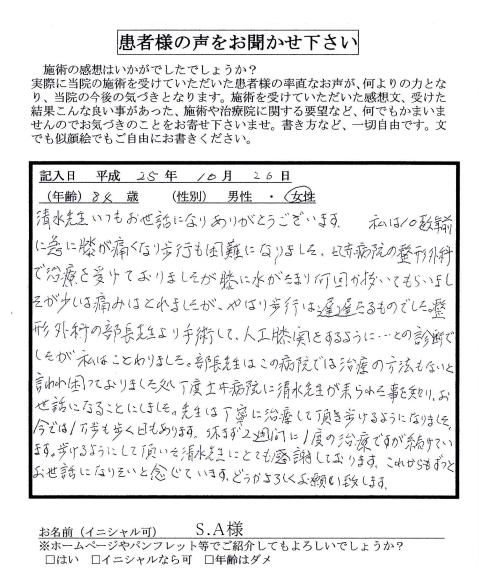 患者様の声をお聞かせ下さい
施術の感想はいかがでしたでしょうか？
実際に当院の施術を受けていただいた患者様の率直なお声が、何よりの力とな
り、当院の今後の気づきとなります。施術を受けていただいた感想文、受けた
結果こんな良い事があった、施術や治療院に関する要望など、何でもかまいま
せんのでお気づきのことをお寄せ下さいませ。書き方など、一切自由です。文
でも似顔絵でもご自由にお書きください。
記入日 平成 25 年 10 月 26 日
（年齢） 84 歳 （性別） 男性 ・ 女性
清水先生いつもお世話になりありがとうございます。 私は10数年前
に急に膝が痛くなり歩行も困難になりました、病院の整形外科
で治療を受けておりましたが膝に水がたまり何回か抜いてもらいまし
たが少しは痛みはとれましたが、やはり歩行は遅遅たるものでした。整
形外科の部長先生より手術して、人工膝関をするように…との診断で
したが私はことわりました。部長先生はこの病院では治療の方法もないと
言われ困っておりました処丁度病院に清水先生が来られた事を知り、お
世話になることにしました。先生は丁寧に治療して頂き歩けるようになりました。
今では1万歩も歩く日もあります。休まず2週間に1度の治療ですが続けてい
ます。歩けるようにして頂いた清水先生にとても感謝しております。これからもずっと
お世話になりたいと念じています。どうかよろしくお願い致します。
お名前（イニシャル可） S.A様
※ホームページやパンフレット等でご紹介してもよろしいでしょうか？
□はい □イニシャルなら可 □年齢はダメ